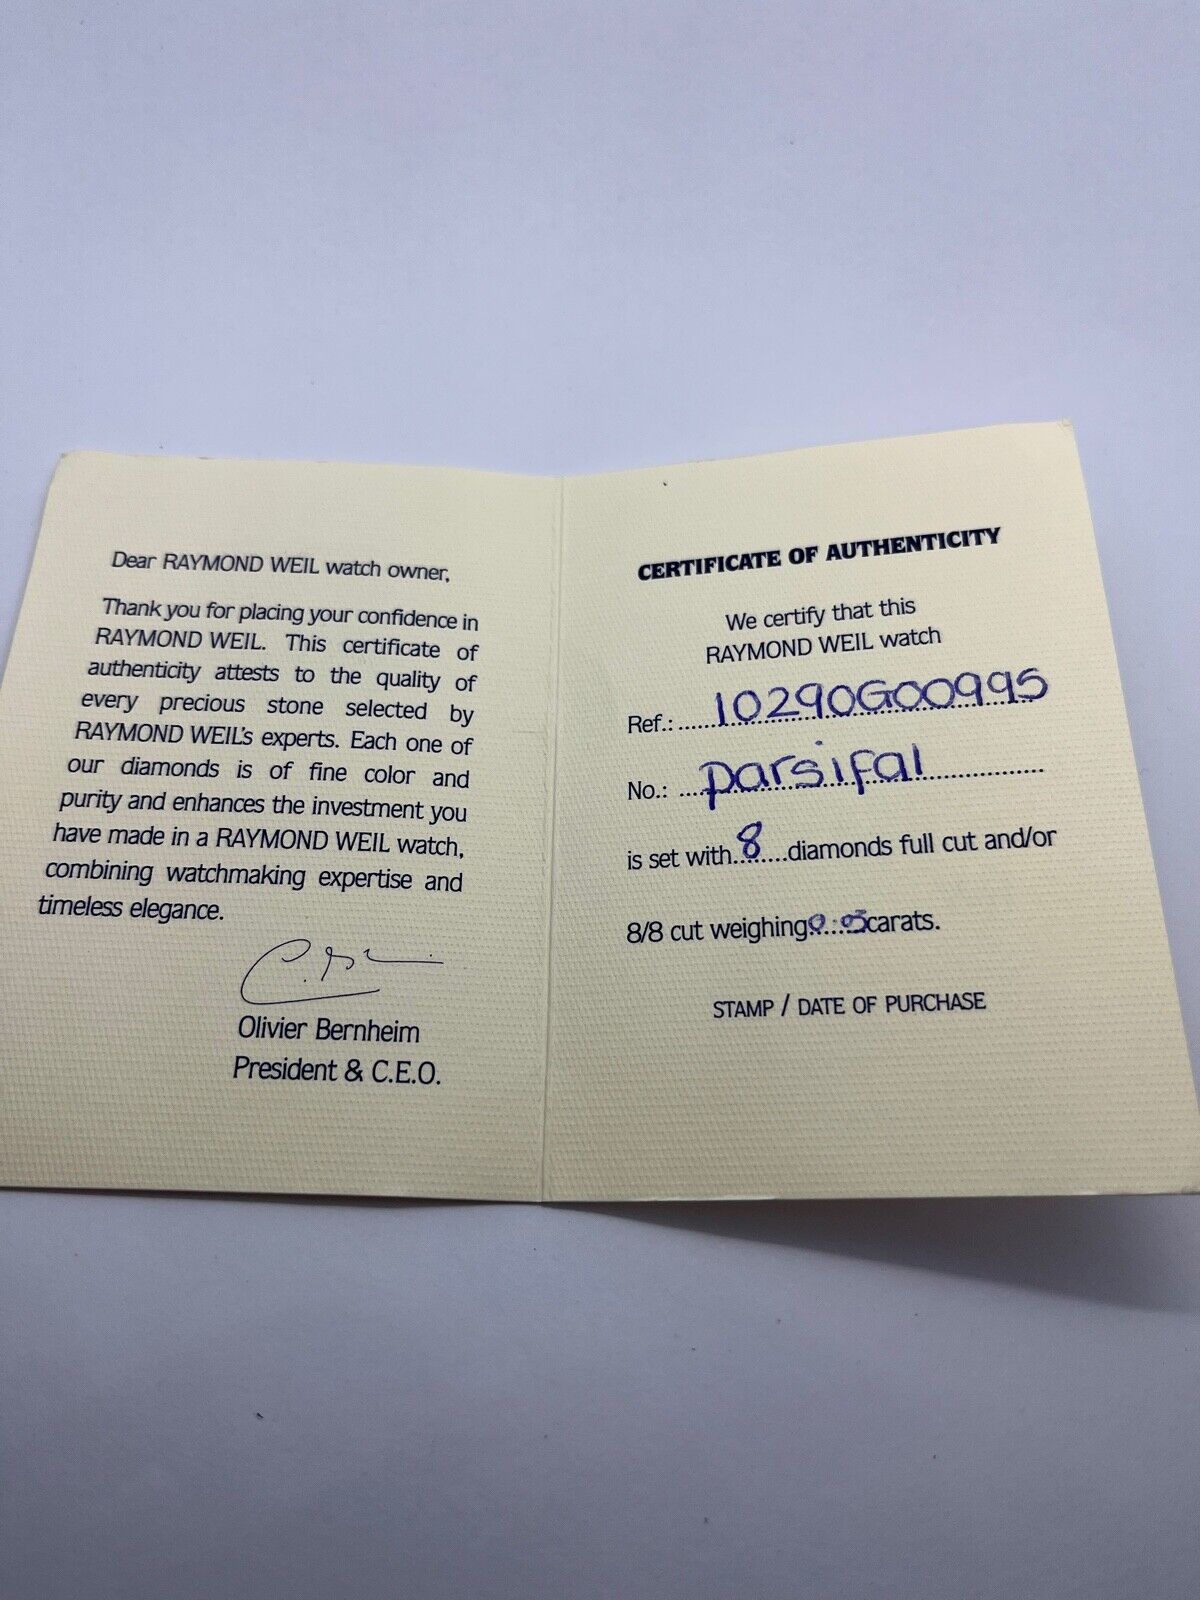 Dear RAYMOND WEIL watch owner,
Thank you for placing your confidence in
RAYMOND WEIL. This certificate of
authenticity attests to the quality of
every precious stone selected by
RAYMOND WEIL's experts. Each one of
our diamonds is of fine color and
purity and enhances the investment you
have made in a RAYMOND WEIL watch,
combining watchmaking expertise and
timeless elegance.
Olivier Bernheim
President & C.E.O.
CERTIFICATE OF AUTHENTICITY
We certify that this
RAYMOND WEIL watch
Ref.: 10290G00995
No.: parsifal
is set with 8 diamonds full cut and/or
8/8 cut weighing 0.05 carats.
STAMP / DATE OF PURCHASE